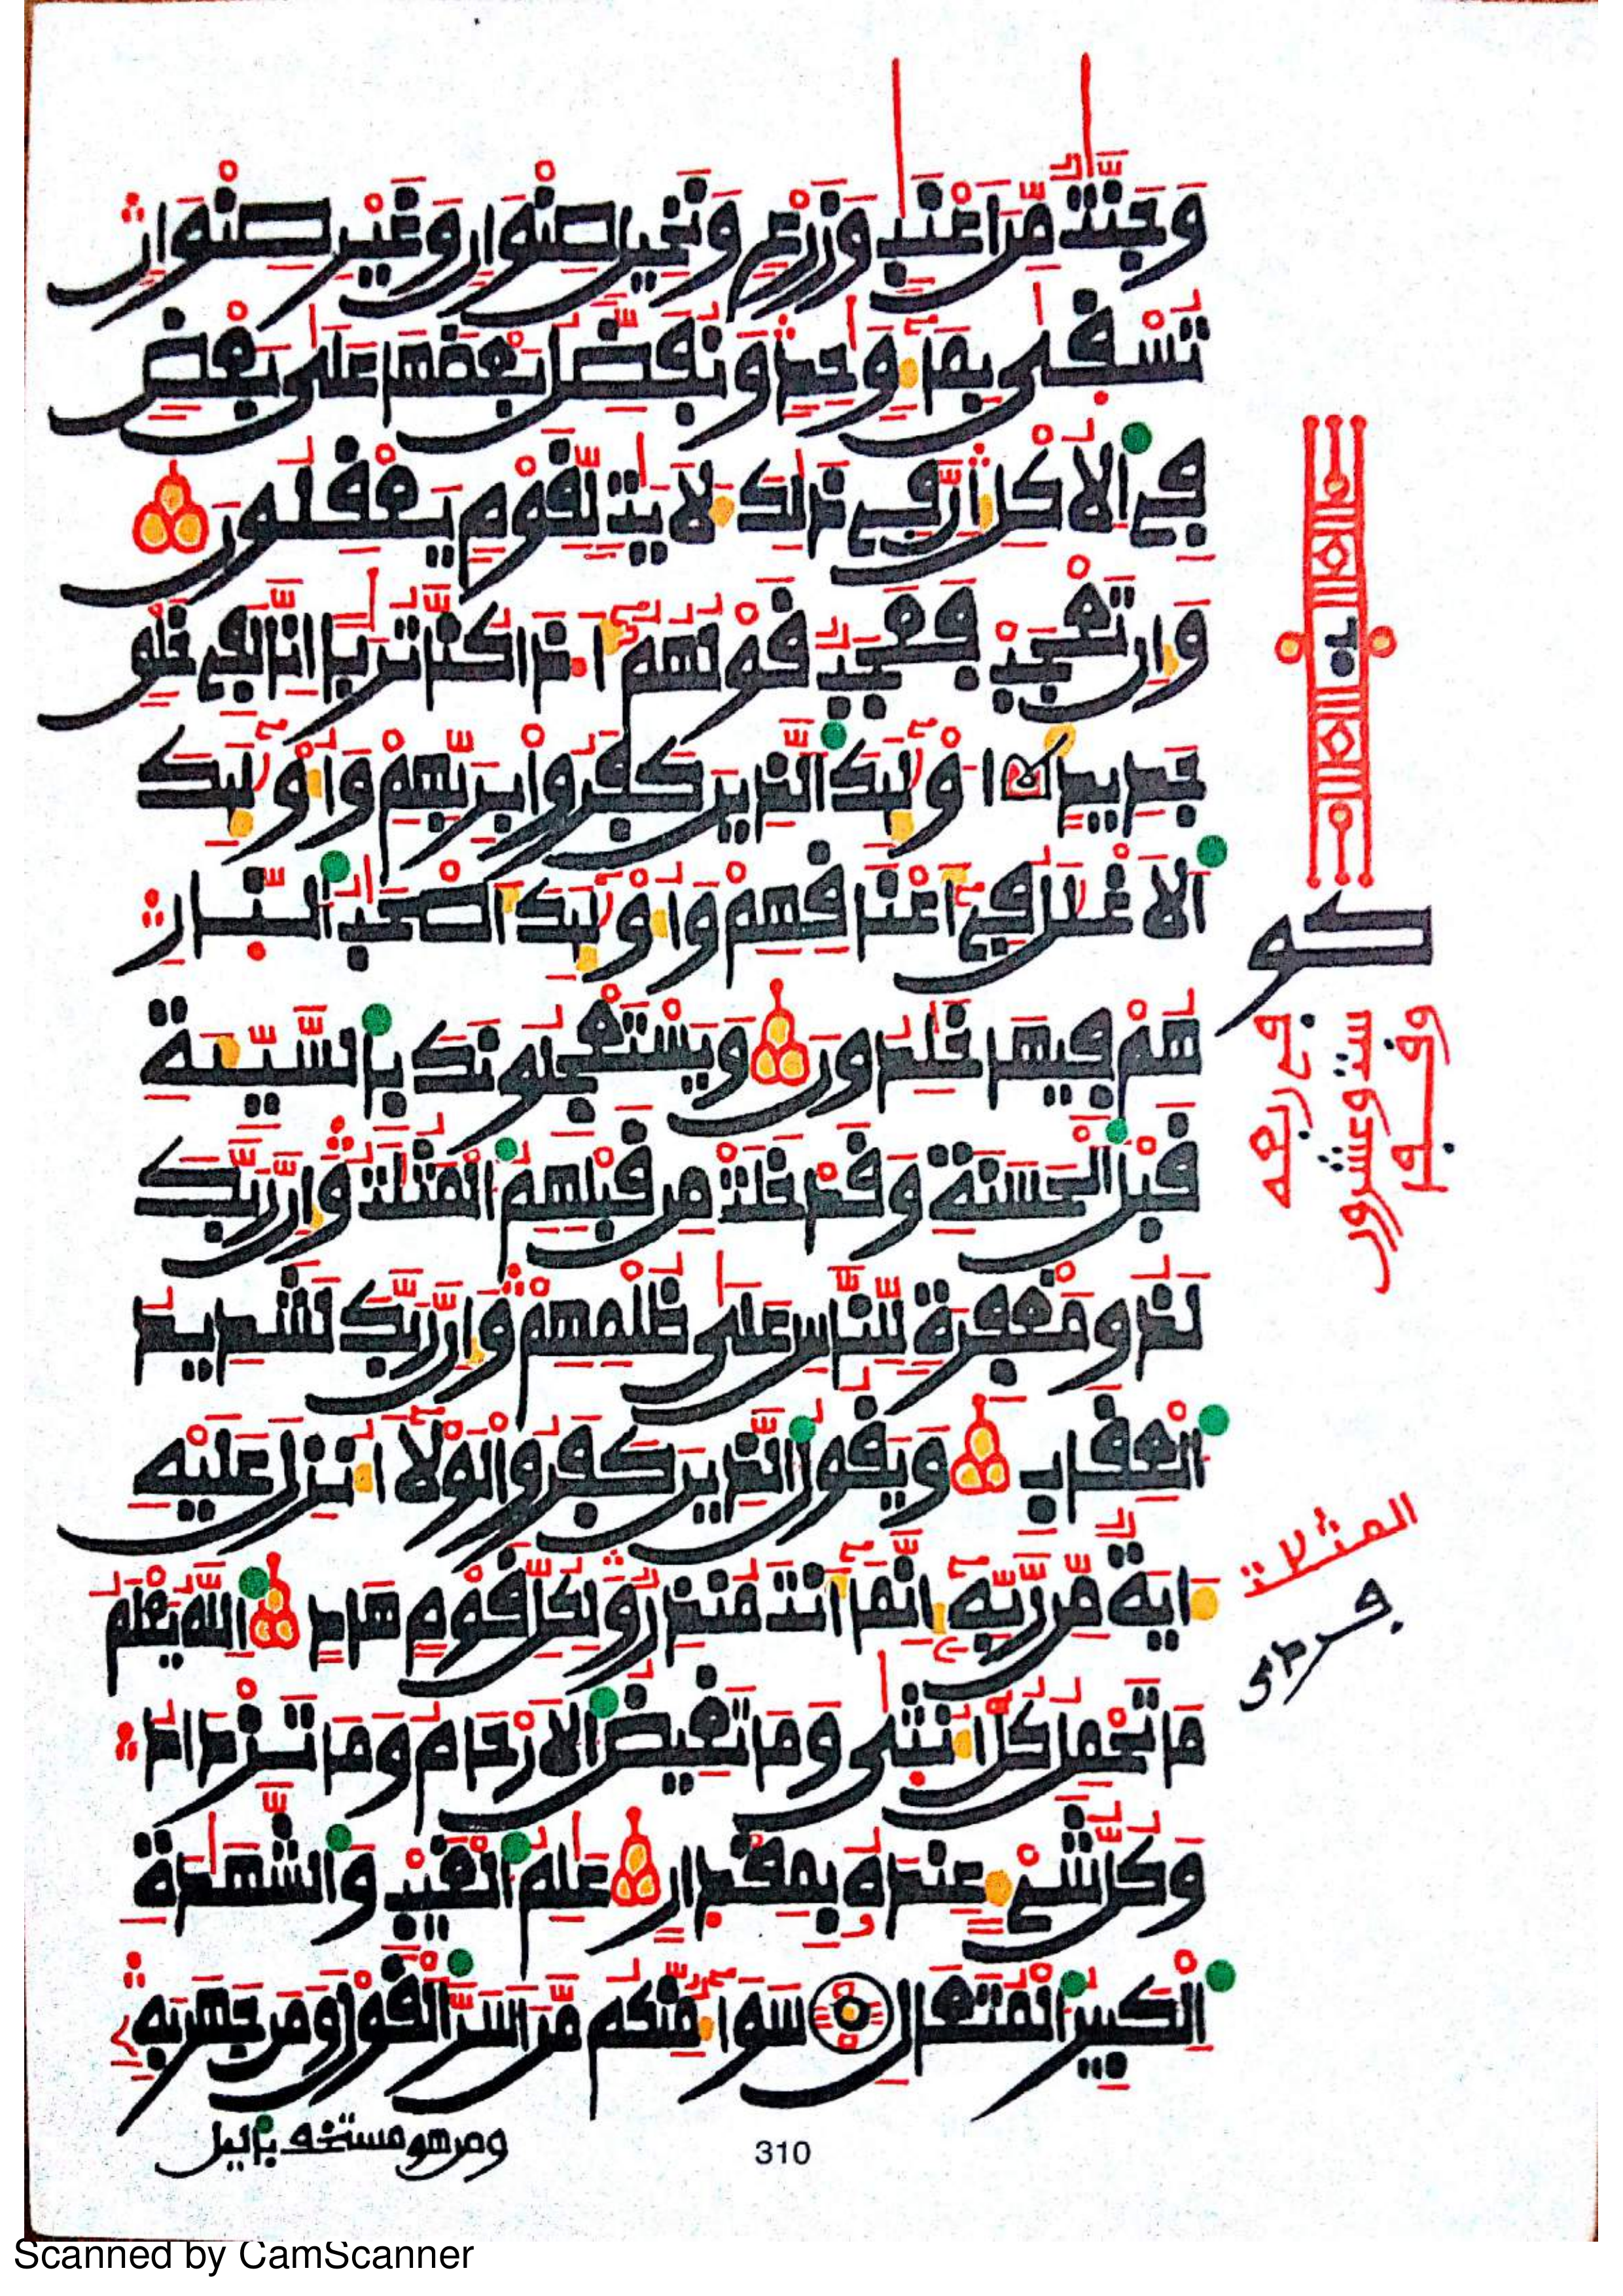 وَجَنَّٰتٞ مِّنَ اَعْنَٰبٖ وَزَرْعٖ وَنَخِيلٖ صِنْوَانٖ وَغَيْرِ صِنْوَانٖ
تُسْقَىٰ بِمَآءٖ وَٰحِدٖ وَنُفَضِّلُ بَعْضَهَا عَلَىٰ بَعْضٖ
فِے اِ۬لُاكْلِ إِنَّ فِے ذَٰلِكَ لَأٓيَٰتٖ لِّقَوْمٖ يَعْقِلُونَ
وَإِن تَعْجَبْ فَعَجَبٞ قَوْلُهُمُۥٓ أَ.ذَا كُنَّا تُرَٰباً اِنَّا لَفِے خَلْقٖ
جَدِيدٍ ا۟وْلَٰٓئِكَ اَ۬لذِينَ كَفَرُواْ بِرَبِّهِمْ وَأُوْلَٰٓئِكَ
اَ۬لَاغْلَٰلُ فِےٓ أَعْنَاقِهِمْ وَأُوْلَٰٓئِكَ أَصْحَٰبُ اُ۬لنّ۪ارِ
هُمْ فِيهَا خَٰلِدُونَ وَيَسْتَعْجِلُونَكَ بِالسَّيِّئَةِ
قَبْلَ اَ۬لْحَسَنَةِ وَقَدْ خَلَتْ مِن قَبْلِهِمُ اُ۬لْمَثُلَٰتُ وَإِنَّ رَبَّكَ
لَذُو مَغْفِرَةٖ لِّلنَّاسِ عَلَىٰ ظُلْمِهِمْ وَإِنَّ رَبَّكَ لَشَدِيدُ
اُ۬لْعِقَابِ وَيَقُولُ اُ۬لذِينَ كَفَرُواْ لَوْلَآ أُنزِلَ عَلَيْهِ
ءَايَةٞ مِّن رَّبِّهِۦٓ إِنَّمَآ أَنتَ مُنذِرٞ وَلِكُلِّ قَوْمٍ هَادٍ اِ۬للَّهُ يَعْلَمُ
مَا تَحْمِلُ كُلُّ أُنث۪ىٰ وَمَا تَغِيضُ اُ۬لَارْحَامُ وَمَا تَزْدَادُ
وَكُلُّ شَےْءٍ عِندَهُۥ بِمِقْد۪ارٍ عَٰلِمُ اُ۬لْغَيْبِ وَالشَّهَٰدَةِ
اِ۬لْكَبِيرُ اُ۬لْمُتَعَالِ سَوَآءٞ مِّنكُم مَّنَ اَسَرَّ اَ۬لْقَوْلَ وَمَن جَهَرَ بِهِۦ
ومن هو مستخف باليل
310
كو
في ربعه
ستة وعشرون
المثلات
Scanned by CamScanner